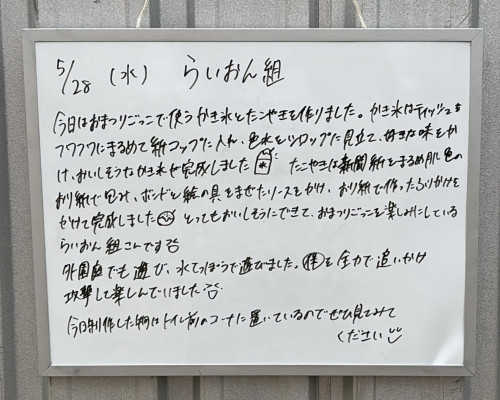 5/28 (水) らいおん組
今日はおまつりごっこで使うかき氷とたこやきを作りました。かき氷はティッシュを
フワフワにまるめて紙コップに入れ、色水をシロップに見立て、好きな味をか
け、おいしそうなかき氷が完成しました たこやきは新聞紙をまるめ肌色の
おり紙で包み、ボンドと絵の具をまぜたソースをかけ、おり紙で作ったふりかけを
かけて完成しました とってもおいしそうにできて、おまつりごっこを楽しみにしている
らいおん組さんです
外園庭でも遊び、水てっぽうで遊びました。を全力で追いかけ
攻撃して楽しんでいました
今日制作した物はトイレ前のコーナーに置いているのでぜひ見てみて
ください